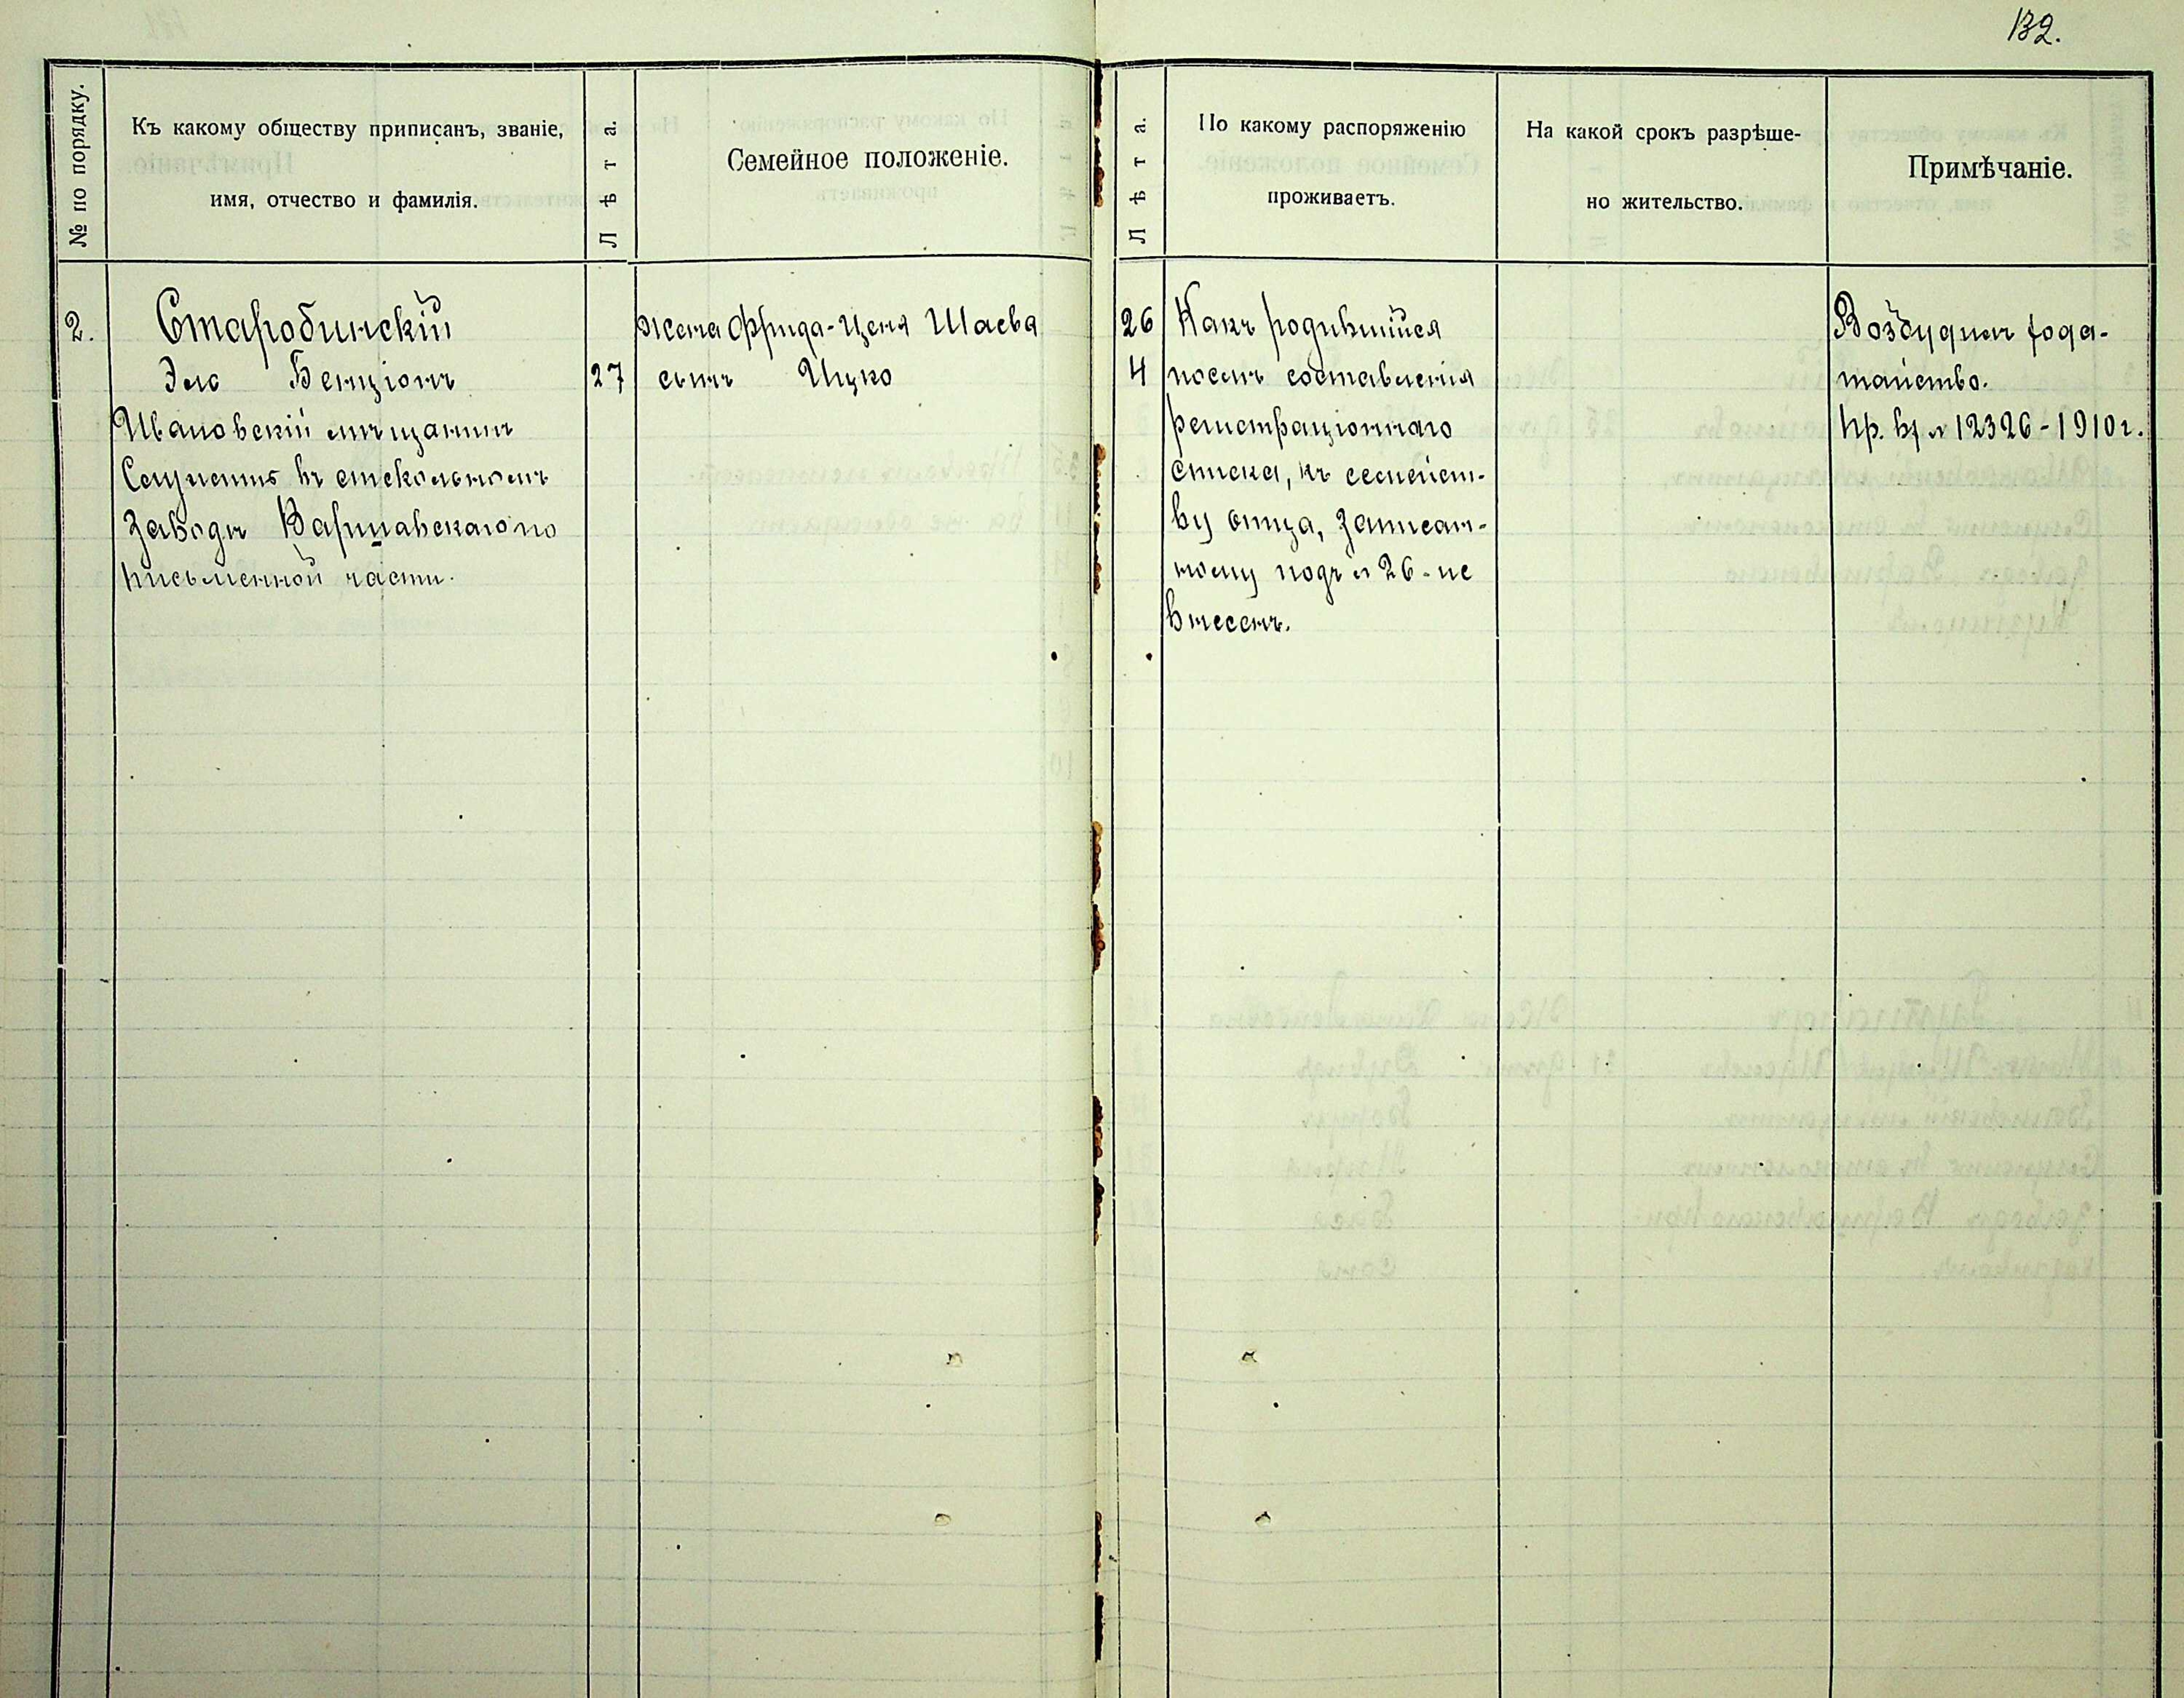 132.
№ по порядку.
Къ какому обществу приписанъ, званіе,
имя, отчество и фамилія.
Лѣта.
Семейное положеніе.
Лѣта.
По какому распоряженію
проживаетъ.
На какой срокъ разрѣше-
но жительство.
Примѣчаніе.
2.
Старобинскій
Эля Бенціонъ
27
Ивановскій мѣщанинъ
Служитъ въ стекольномъ
заводѣ Варшавскаго по
письменной части.
жена Фрида-Ценя Шаева
26
сынъ Ицко
4
Какъ родившійся
послѣ составленія
регистраціоннаго
списка, къ семейст-
ву отца, записан-
ному подъ № 26 - не
внесенъ.
Возбудилъ хода-
тайство.
Пр. вх № 12326 - 1910 г.